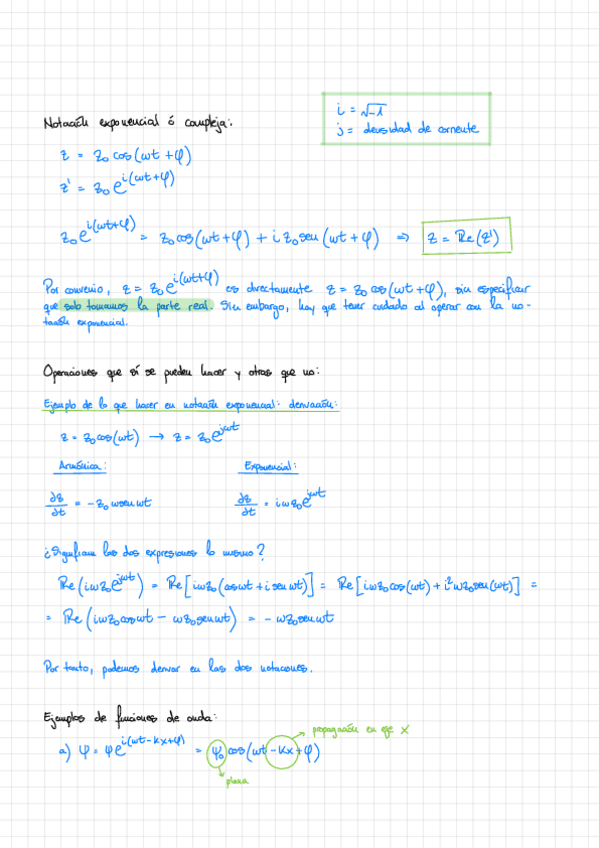 i = √-1
j = densidad de corriente
Notación exponencial ó compleja:
z = z₀ cos(ωt + φ)
z' = z₀ e^{i(ωt+φ)}
z₀ e^{i(ωt+φ)} = z₀ cos(ωt + φ) + i z₀ sen(ωt + φ) ⇒ z = Re(z')
Por convenio, z = z₀ e^{i(ωt+φ)} es directamente z = z₀ cos(ωt + φ), sin especificar
que solo tomamos la parte real. Sin embargo, hay que tener cuidado al operar con la no-
tación exponencial.
Operaciones que sí se pueden hacer y otras que no:
Ejemplo de lo que hacer en notación exponencial: derivación:
z = z₀ cos(ωt) → z = z₀ e^{jωt}
Armónica: Exponencial:
∂z/∂t = -z₀ ω sen ωt ∂z/∂t = iω z₀ e^{jωt}
¿Significan las dos expresiones lo mismo?
Re(iωz₀ e^{jωt}) = Re[iωz₀ (cosωt + i sen ωt)] = Re[iωz₀ cos(ωt) + i² ωz₀ sen(ωt)] =
= Re(iωz₀ cosωt - ωz₀ senωt) = - ωz₀ senωt
Por tanto, podemos derivar en las dos notaciones.
Ejemplos de funciones de onda:
propagación en eje x
a) ψ = ψ e^{i(ωt-kx+φ)} = ψ₀ cos(ωt - kx + φ)
plana